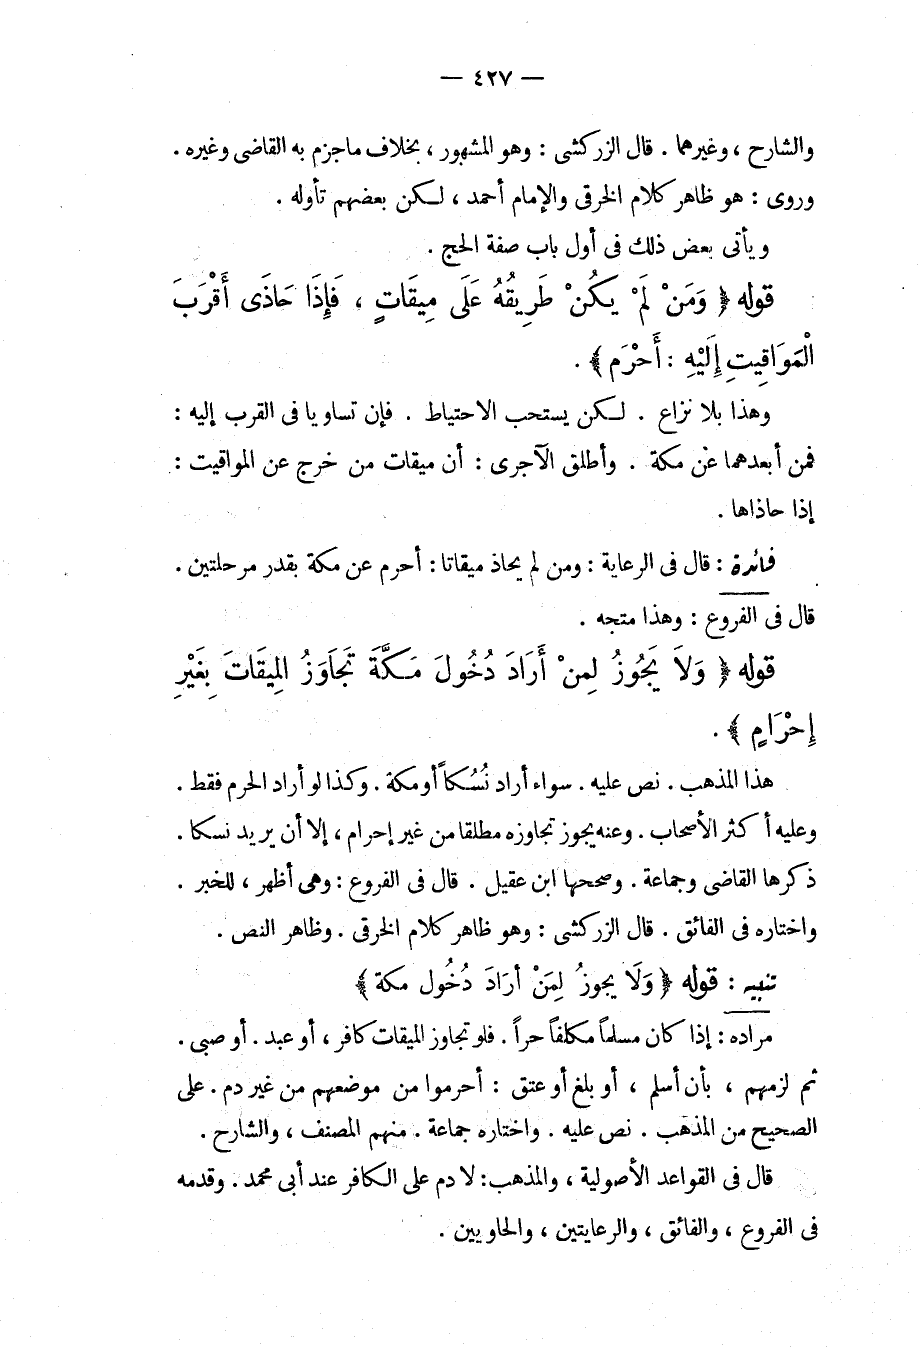 — ٤٢٧ —
والشارح ، وغيرهما . قال الزركشى : وهو المشهور ، بخلاف ماجزم به القاضى وغيره .
وروى : هو ظاهر كلام الخرقى والإمام أحمد ، لكن بعضهم تأوله .
ويأتى بعض ذلك فى أول باب صفة الحج .
قوله ﴿ وَمَنْ لَمْ يَكُنْ طَرِيقُهُ عَلَى مِيقَاتٍ ، فَإِذَا حَاذَى أَقْرَبَ
الْمَوَاقِيتِ إِلَيْهِ : أَحْرَم ﴾ .
وهذا بلا نزاع . لكن يستحب الاحتياط . فإن تساويا فى القرب إليه :
فمن أبعدهما عن مكة . وأطلق الآجرى : أن ميقات من خرج عن المواقيت :
إذا حاذاها .
فائدة : قال فى الرعاية : ومن لم يحاذ ميقاتا : أحرم عن مكة بقدر مرحلتين .
قال فى الفروع : وهذا متجه .
قوله ﴿ وَلاَ يَجُوزُ لِمنْ أَرَادَ دُخُولَ مَكَّةَ تَجَاوَزُ المِيقَاتَ بِغَيْرِ
إِحْرَامٍ ﴾ .
هذا المذهب . نص عليه . سواء أراد نُسُكاً أو مكة . وكذا لو أراد الحرم فقط .
وعليه أكثر الأصحاب . وعنه يجوز تجاوزه مطلقا من غير إحرام ، إلا أن يريد نسكا .
ذكرها القاضى وجماعة . وصححها ابن عقيل . قال فى الفروع : وهى أظهر ، للخبر .
واختاره فى الفائق . قال الزركشى : وهو ظاهر كلام الخرقى . وظاهر النص .
تنبيه : قوله ﴿ وَلَا يجوزُ لِمَنْ أرَادَ دُخُول مكة ﴾
مراده : إذا كان مسلماً مكلفاً حراً . فلو تجاوز الميقات كافر ، أو عبد . أو صبى .
ثم لزمهم ، بأن أسلم ، أو بلغ أو عتق : أحرموا من موضعهم من غير دم . على
الصحيح من المذهب . نص عليه . واختاره جماعة . منهم المصنف ، والشارح .
قال فى القواعد الأصولية ، والمذهب : لا دم على الكافر عند أبى محمد . وقدمه
فى الفروع ، والفائق ، والرعايتين ، والحاويين .